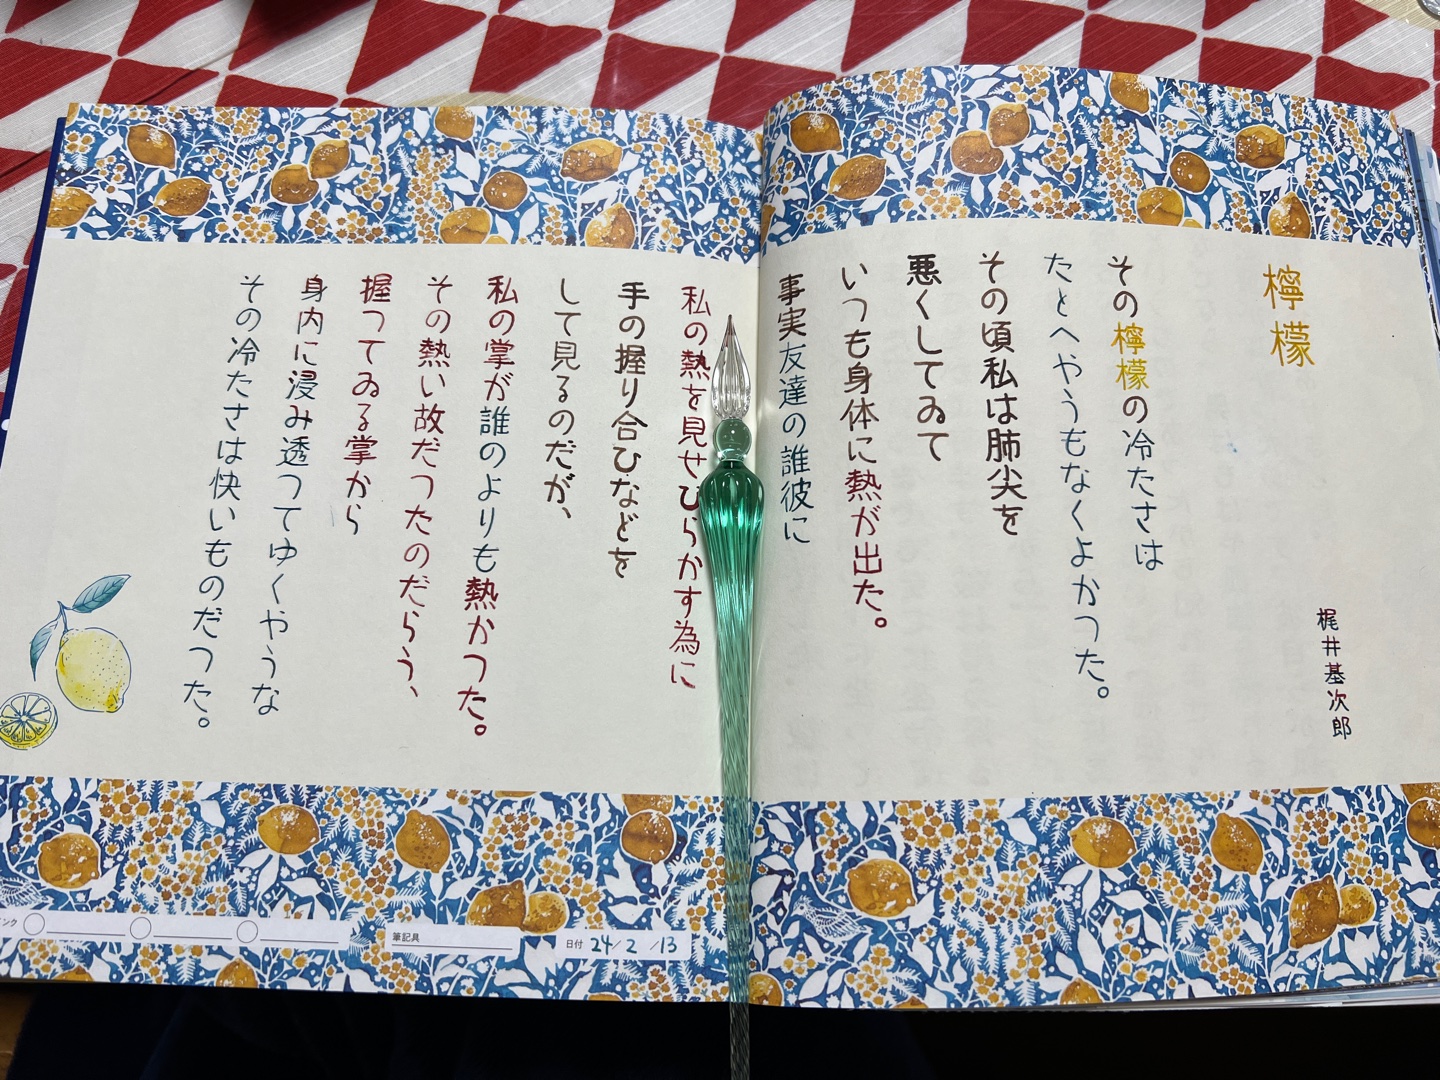 檸檬
梶井基次郎
その檸檬の冷たさは
たとへやうもなくよかつた。
その頃私は肺尖を
悪くしてゐて
いつも身体に熱が出た。
事実友達の誰彼に
私の熱を見せびらかす為に
手の握り合ひなどを
して見るのだが、
私の掌が誰のよりも熱かつた。
その熱い故だつたのだらう、
握つてゐる掌から
身内に浸み透つてゆくやうな
その冷たさは快いものだつた。
ンク
筆記具
日付 24/2/13